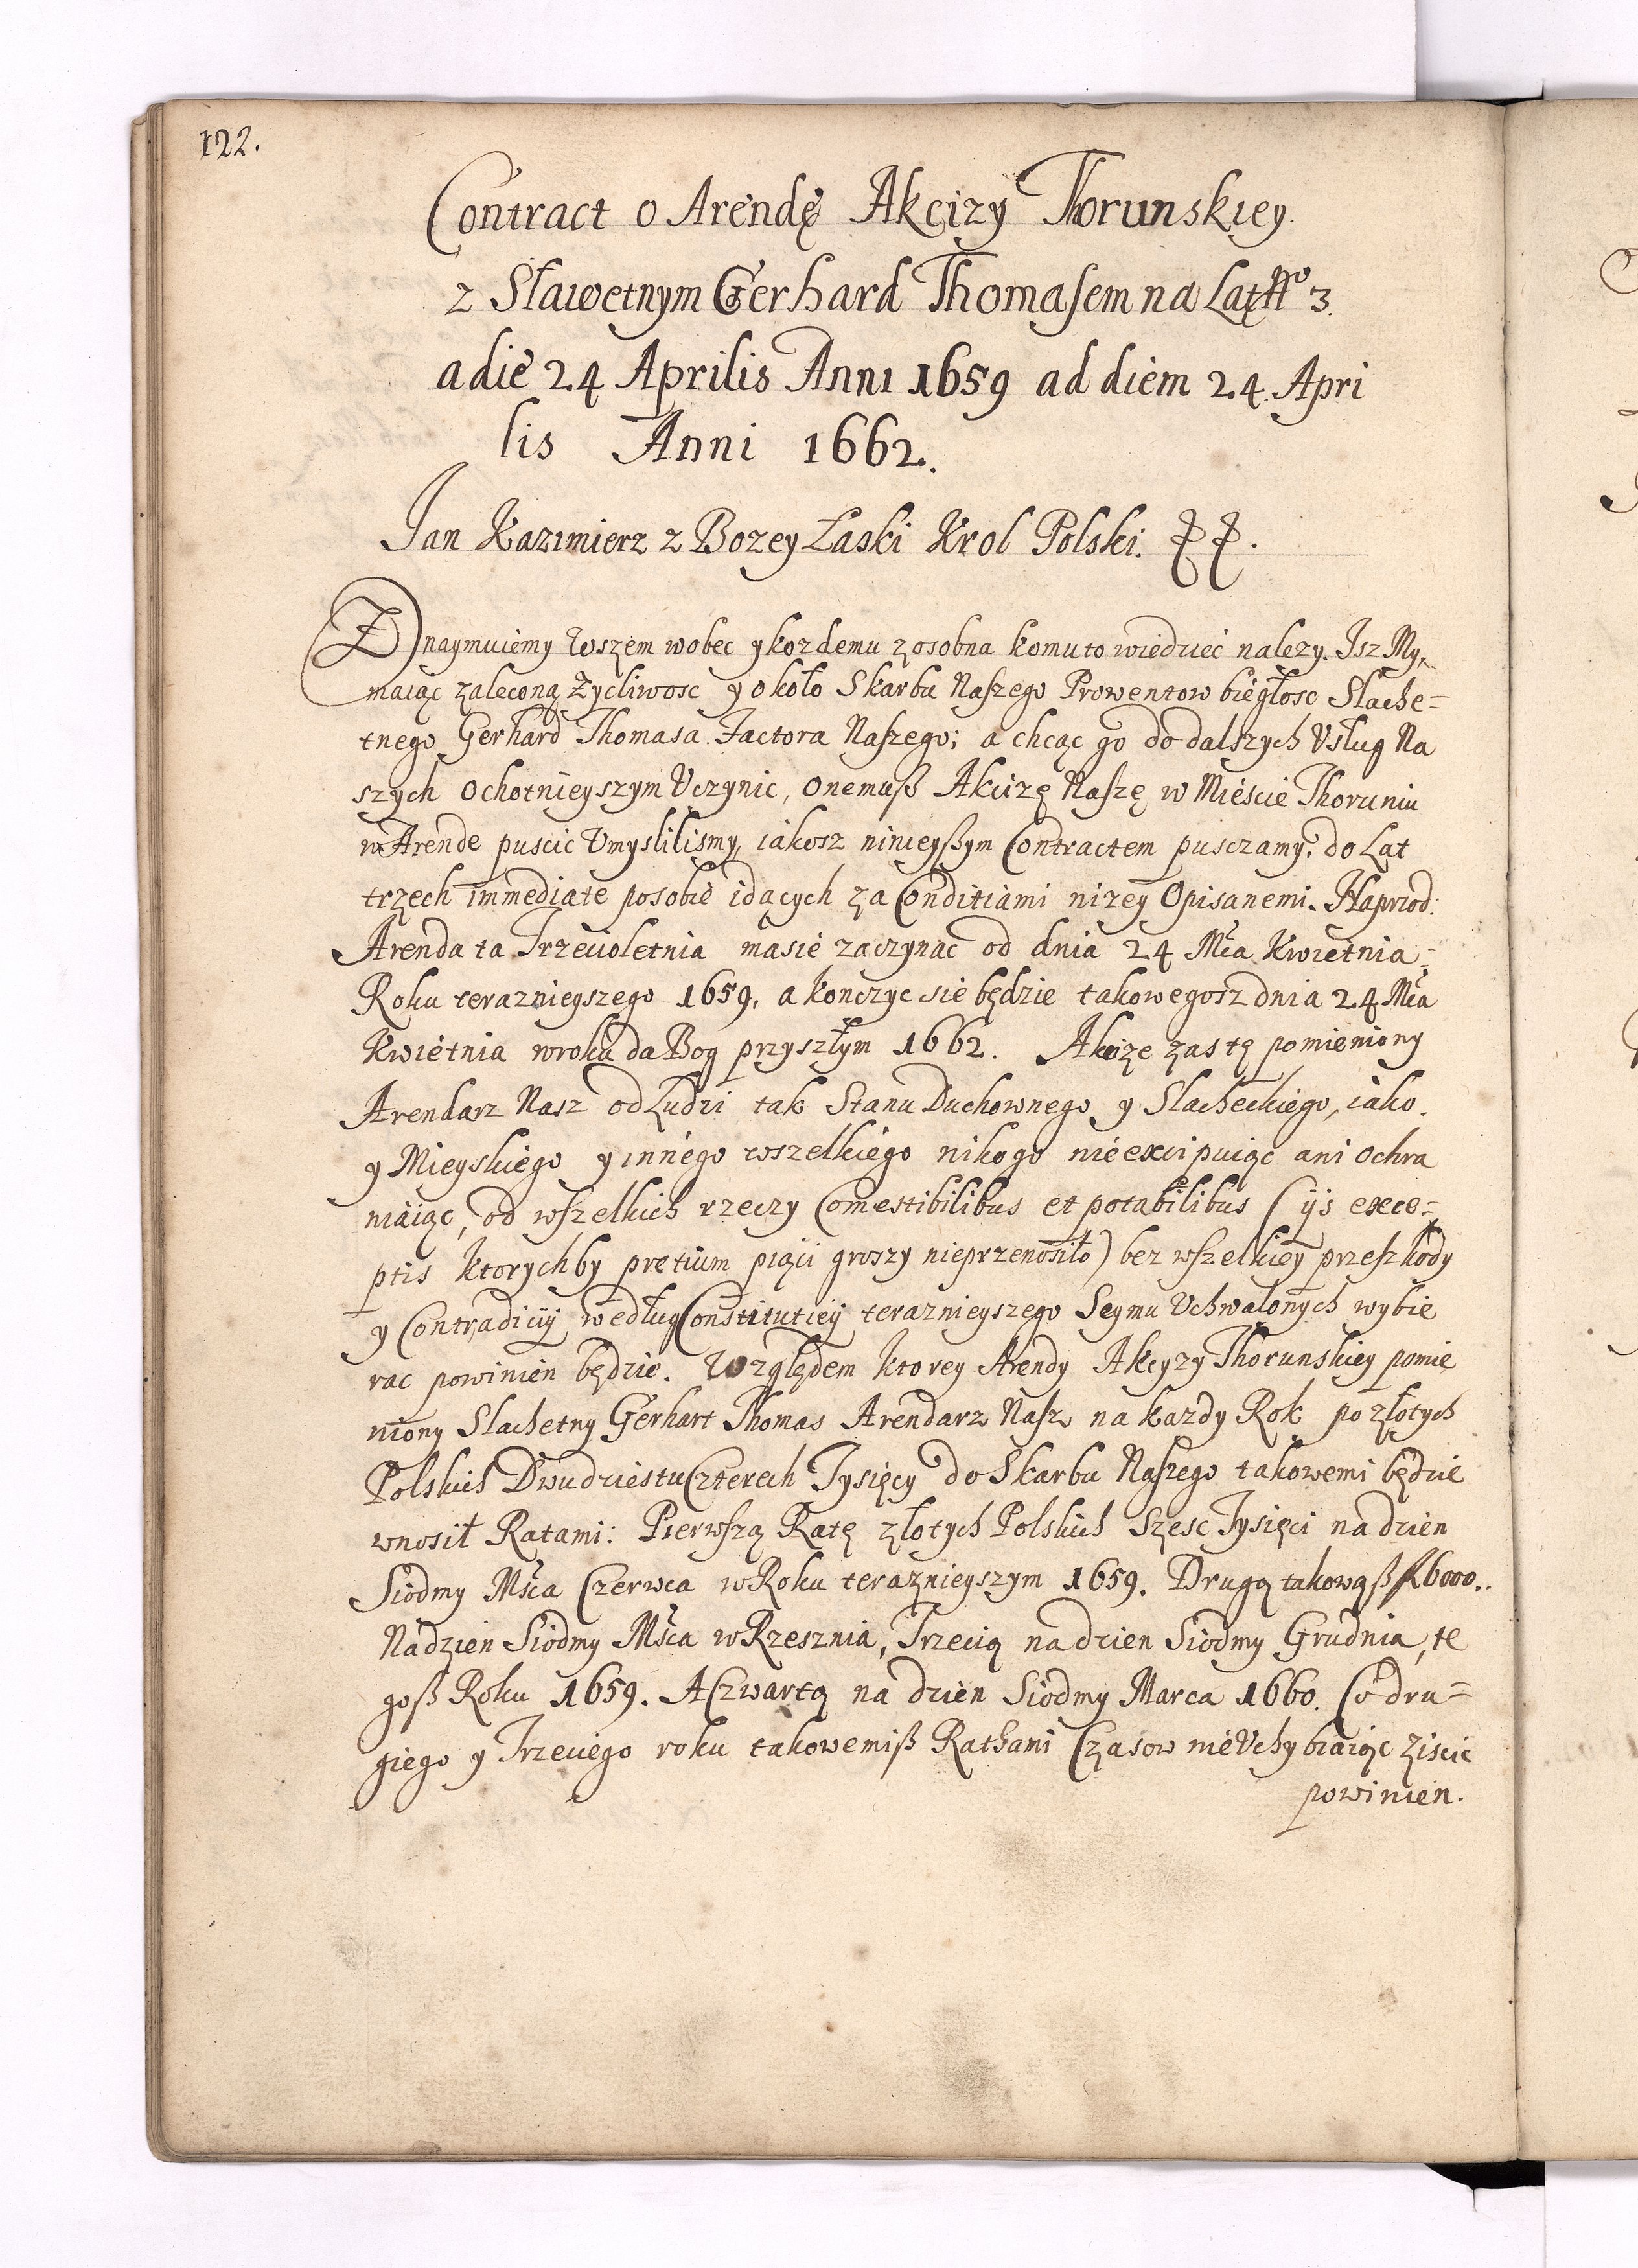 122.
Contract o Arendę Akcizy Thorunskiey.
z Sławetnym Gerhard Thomasem na Lat 3.
a die 24 Aprilis Anni 1659 ad diem 24. Apri
lis Anni 1662.
Jan Kazimierz z Bozey Łaski Krol Polski.
Znaymuiemy wszem wobec y kozdemu zosobna komuto wiedziec nalezy. Isz My,
maiąc zaleconą zycliwosc y około Skarbu Naszego Prowentow biegłosc Slache=
tnego Gerhard Thomasa Factora Naszego; a chcąc go do dalszych Vsług Na
szych ochotnieyszym Vczynic, onemuß Akcizę Naszę w Miescie Thoruniu
w Arende puscic Vmyslilismy, iakosz ninieyßym Contractem pusczamy. do Lat
trzech immediate posobie idących za Conditiami nizey Opisanemi. Naprzod:
Arenda ta Trzecioletnia masie zaczynac od dnia 24 Mca Kwietnia
Roku teraznieyszego 1659. a konczyc sie będzie takowegosz dnia 24 Mca
Kwietnia wroku da Bog przyszłym 1662. Akcize zas tę pomieniony
Arendarz Nasz od Ludzi tak Stanu Duchownego y Slacheckiego, iako.
y Mieyskiego y innego wszelkiego nikogo nie excipuiąc ani ochra
niaiąc, od wszelkich rzeczy Comestibilibus et potabilibus (ijs exce=
ptis ktorychby pretium piąci groszy nieprzenosiło) bez wszelkiey przeszkody
y Contradiciÿ według Constitutieÿ teraznieyszego Seymu Vchwalonych wybie
rac powinien będzie. Względem ktorey Arendy Akcyzy Thorunskiey pomie
niony Slachetny Gerhart Thomas Arendarz Nasz na kazdy Rok po złotych
Polskich Dwudziestu Czterech Tysięcy do Skarbu Naszego takowemi będzie
wnosił Ratami: Pierwszą Ratę złotych Polskich Szesc Tysięci na dzien
Siodmy Msca Czerwca w Roku teraznieyszym 1659. Drugą takowąß f 6000..
Na dzien Siodmy Msca w Rzesznia, Trzecią na dzien Siodmy Grudnia, te
goß Roku 1659. A Czwartą na dzien Siodmy Marca 1660. Co dru=
giego y Trzeciego roku takowemiß Rathami Czasow nie Vchybiaiąc ziscic
powinien.